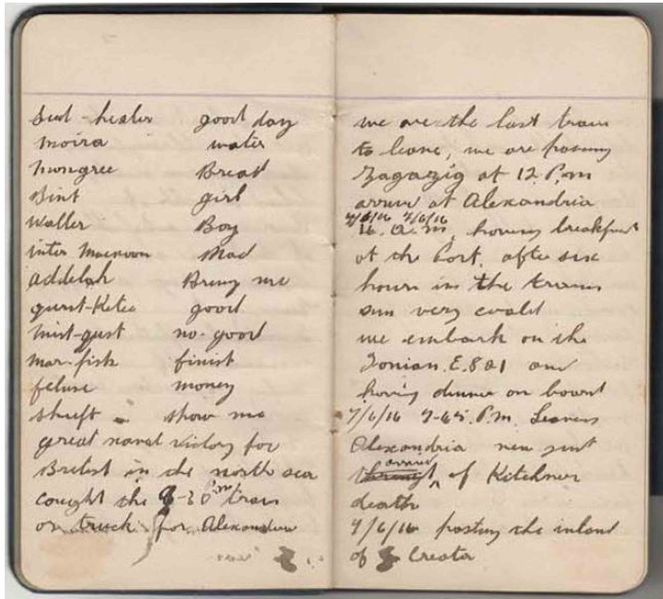 Sud-heater good day
moira water
hungree Bread
Bint girl
Waller Boy
inter Macnoon Mad
addelah Bring me
gurst-Ketea good
mist-gust no-good
mar-fish finist
feluse money
shuft show me
great naval victory for
Britest in the north sea
cought the 8-30 pm train
or truck for Alexandria
we are the last train
to leave, we are passing
Zagazig at 12. P.m
arrive at Alexandria
7/6/16 7/6/16
A.m, having breakfast
at the Port. after six
hours in the train
sun very could
we embark on the
Ionian. E.801 and
having dinner on board
7/6/16 7-45. P.m. Leaven
Alexandria new just
arrived
of Kitchner
death
7/6/16 passing the inland
of Creata